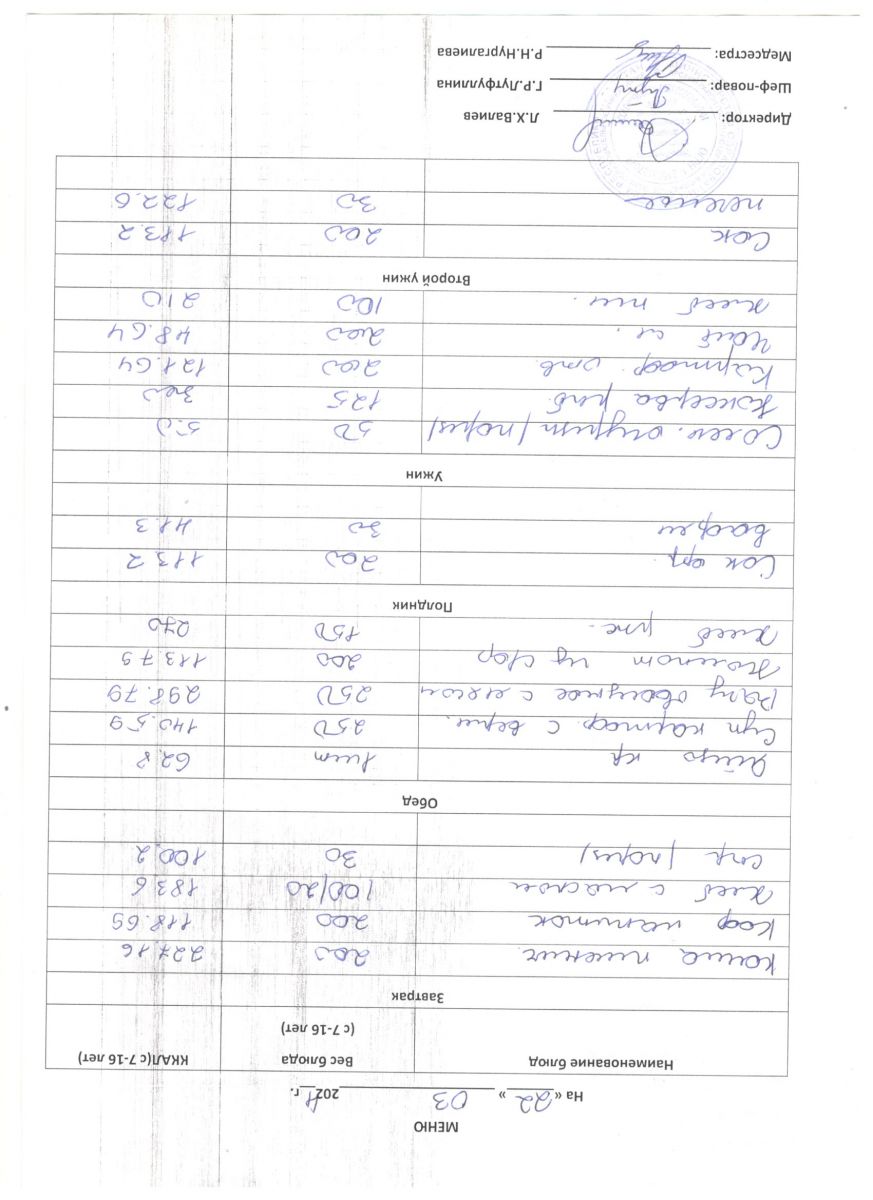 МЕНЮ
На « 22 » 03 202 г.
Наименование блюд Вес блюда (с 7-16 лет) ККАЛ(с 7-16 лет)
Завтрак
Каша пшенич 200 227.16
Коф напиток 200 118.69
Хлеб с маслом 100/20 183.6
Сыр /порц/ 30 100.2
Обед
Яйцо кр 1шт 62,8
Суп картоф. с верм. 250 140.59
Рагу овощное с мясом 250 298.79
Компот из с/фр 200 113.79
Хлеб рж. 150 270
Полдник
Сок фр. 200 113.2
Вафли 30 41.3
Ужин
Солен. огурцы /порц/ 50 5.0
Консерва рыб. 125 300
Картоф. отв. 200 121.64
Чай сл. 200 48.64
Хлеб пш. 100 210
Второй ужин
Сок 200 113.2
печенье 30 122.6
Директор: Л.Х.Валиев
Шеф-повар: Г.Р.Лутфуллина
Медсестра: Р.Н.Нургалиева